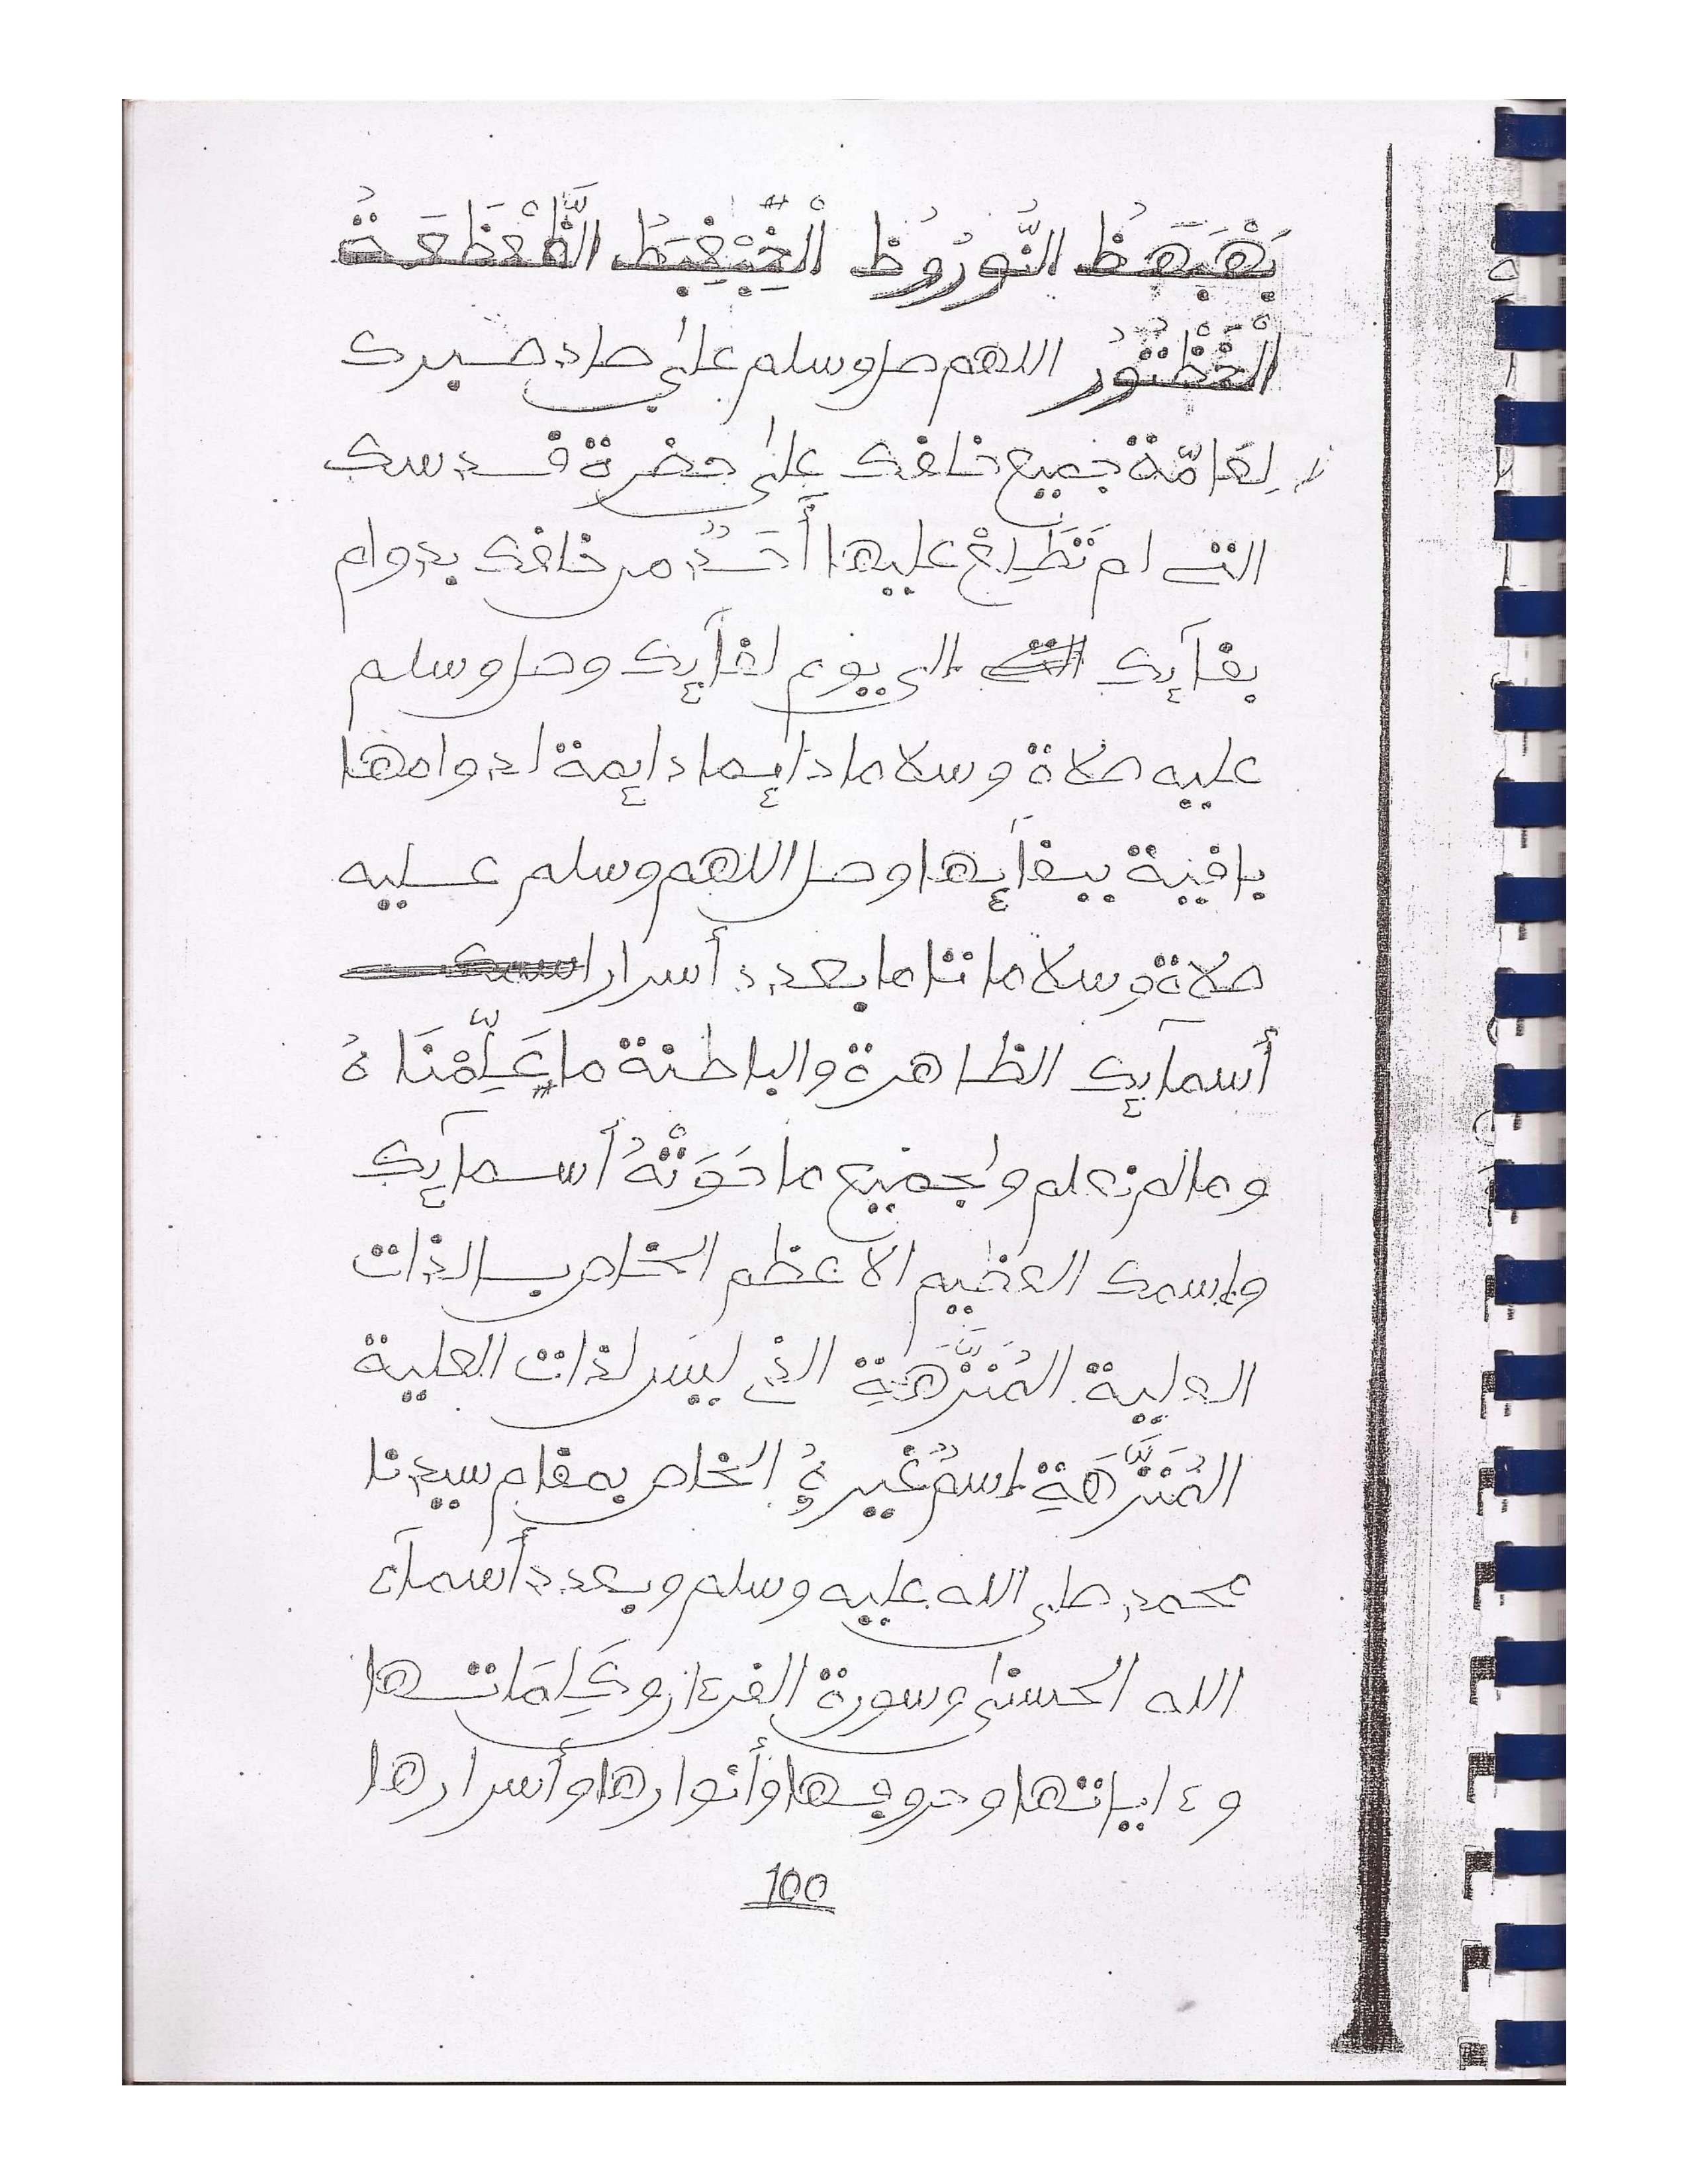 اللهم صل وسلم على صاد صبرك
لِعَامّة جميع خلقك على حضرة قدسك
التي لم تَطَّلِعْ عليها أَحَدٌ من خلقك بدوام
بقآئك التي إلى يوم لقآئك وصل وسلم
عليه صلاة وسلاما دائما دائمة لدوامها
باقية ببقآئها وصل اللهم وسلم عليه
صلاة وسلاما تاما بعدد أسرار اسمك
أسمآئك الظاهرة والباطنة ما عَلِّمْنَاهُ
وما لم نعلم وبجميع ما حَوَتْهُ أسمآئك
وباسمك العظيم الاعظم الخاص بالذات
العلية المُنَزَّهَةِ الذي ليس لذات العلية
المُنَزَّهَةِ إسمٌ غيرهُ الخاص بمقام سيدنا
محمد صلى الله عليه وسلم وبعدد أسمآء
الله الحسنى وسورة القرءان وكَلِمَاتها
وءاياتها وحروفها وأنوارها وأسرارها
100